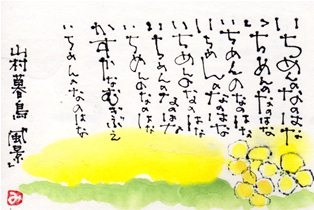 いちめんのなのはな
いちめんのなのはな
いちめんのなのはな
いちめんのなのはな
いちめんのなのはな
いちめんのなのはな
いちめんのなのはな
かすかなるむぎぶえ
いちめんのなのはな
山村暮鳥『風景』
み